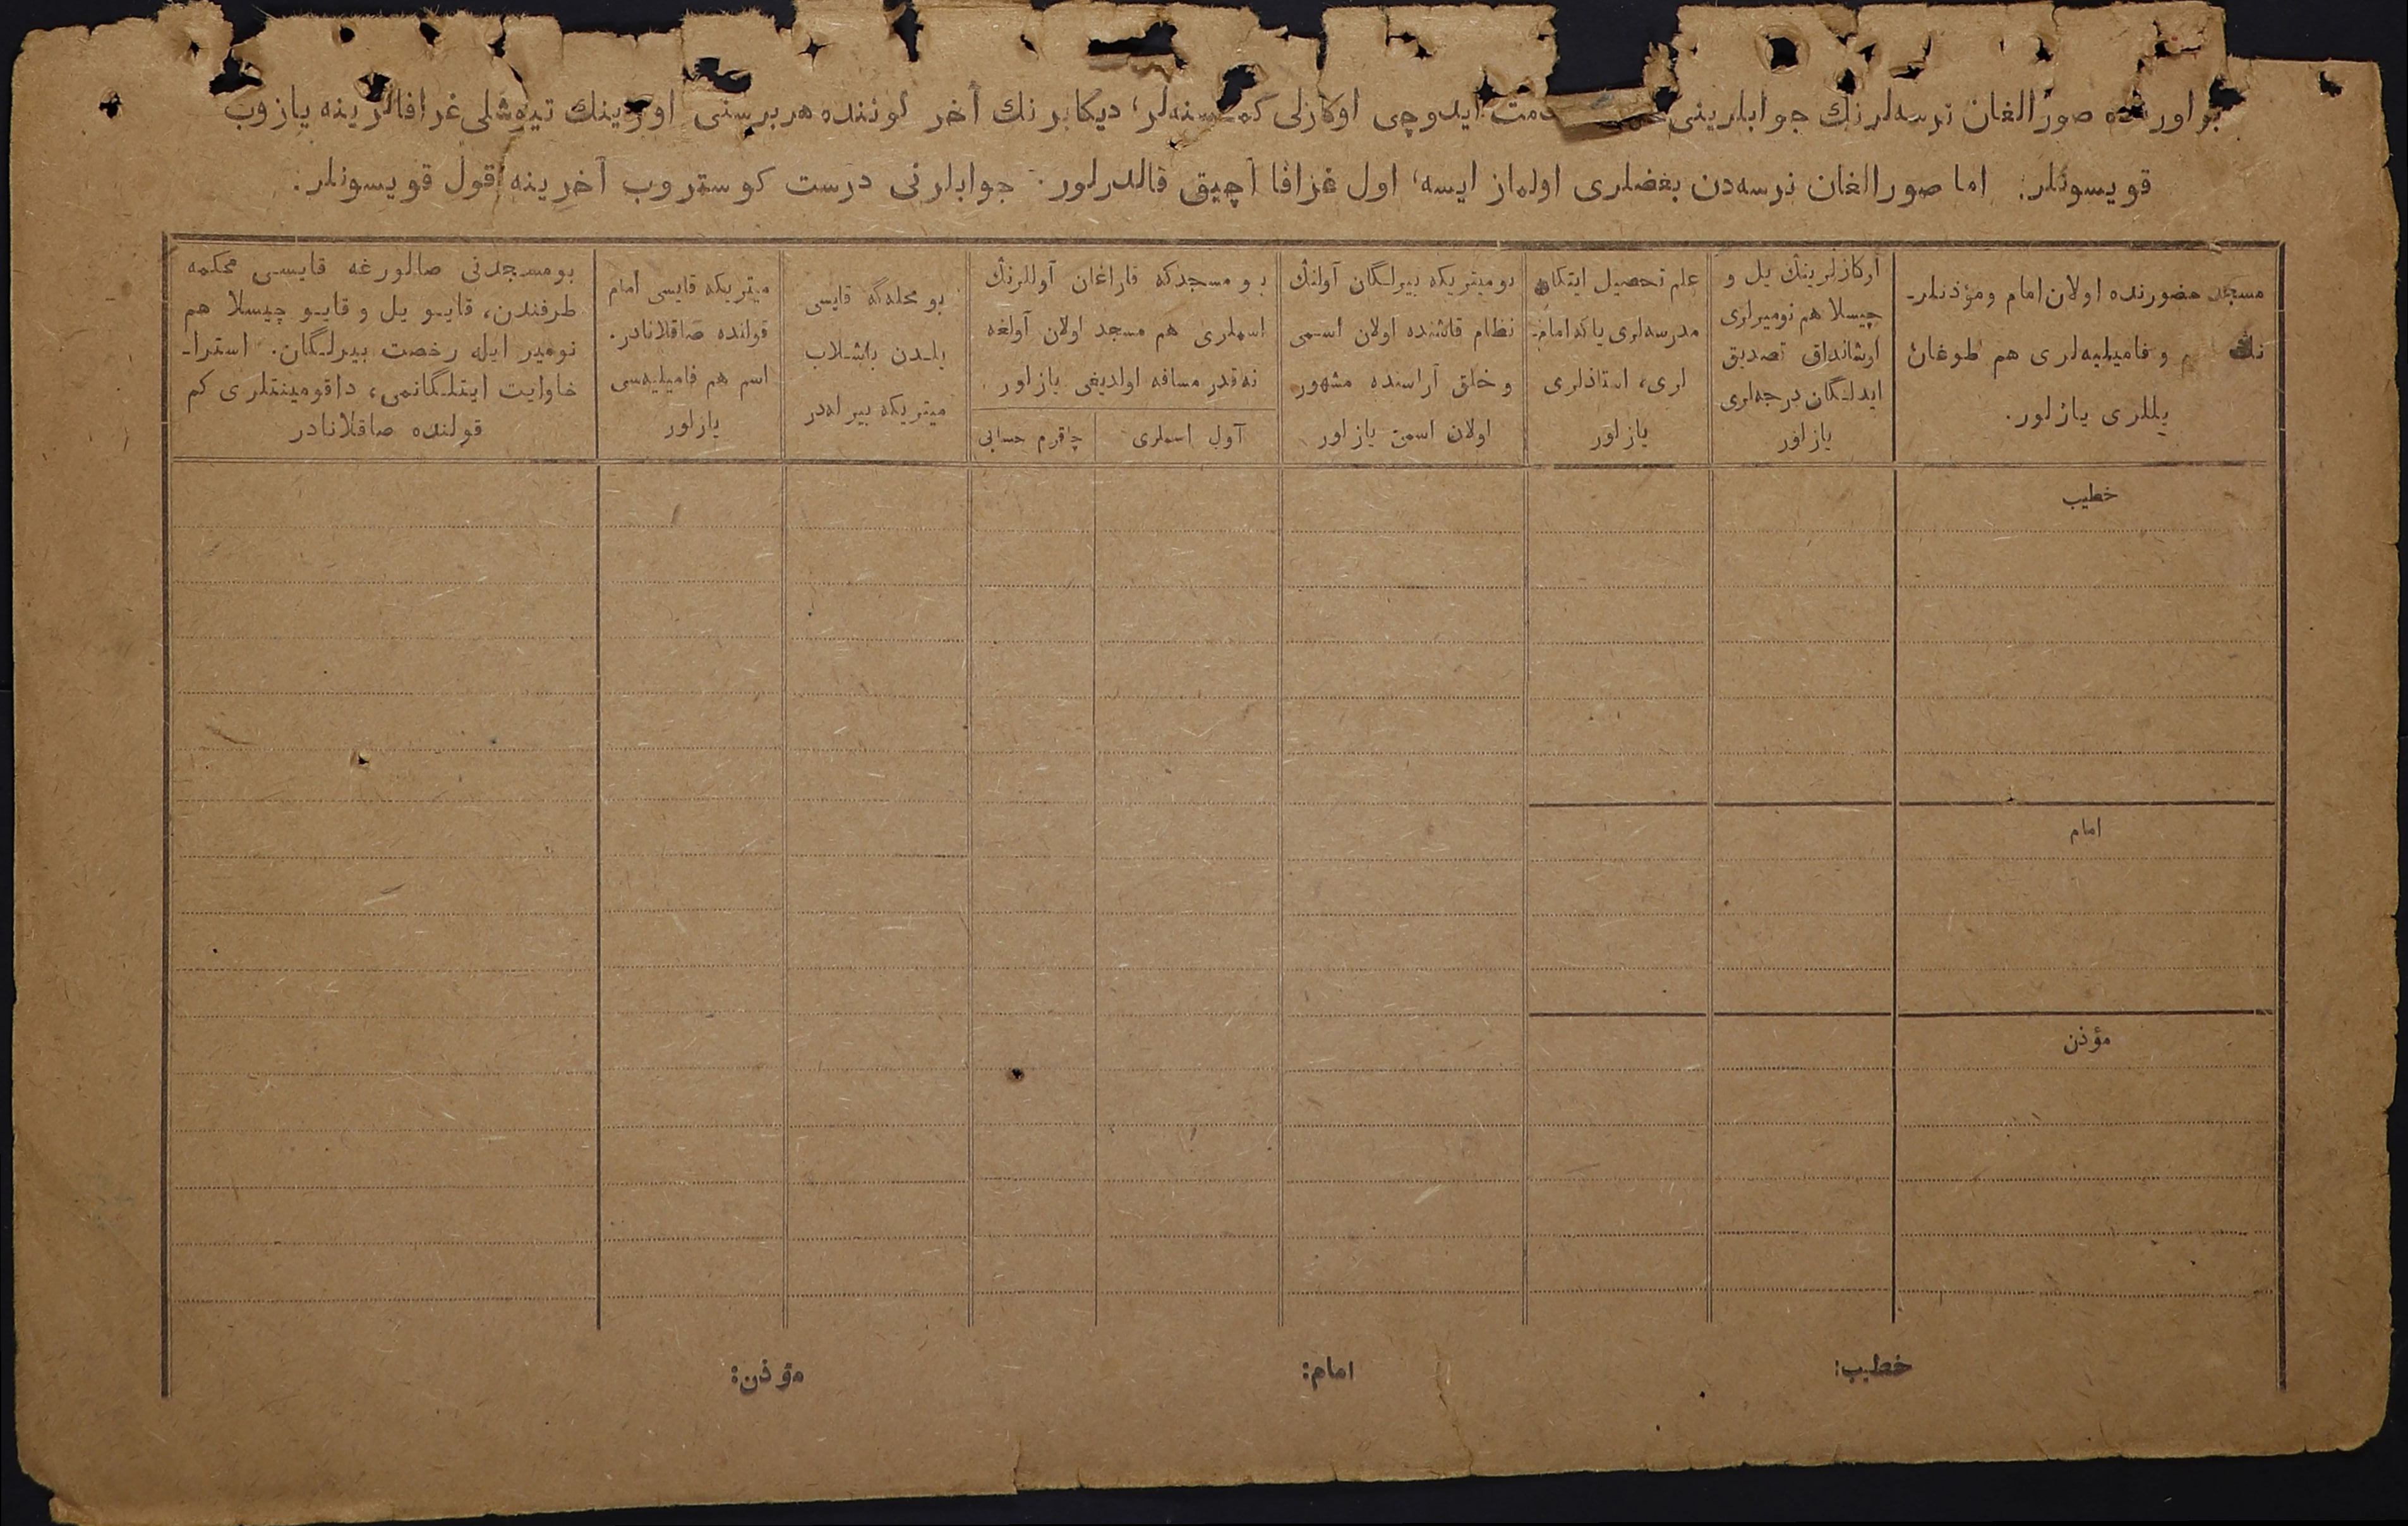 بو اورنده صورالغان نرسه‌لرنڭ جوابلرینی خدمت ایدوچی اوکازلی کمسنه‌لر، دیکابر نڭ آخر کوننده هر برسنی اوزینڭ تیوشلی غرافالرینه یازوب
قویسونلر. اما صورالغان نرسه‌دن بعضلری اولماز ایسه، اول غرافا آچیق قالدرلور. جوابلرنی درست کوستروب آخرینه قول قویسونلر.
مسجد حضورنده اولان امام و مؤذنلر-
نڭ و فامیلیه‌لری هم طوغان
یللری یازلور.
اوکازلرینڭ یل و
چیسلا هم نومیرلری
اوشانداق تصدیق
ایدلـگان درجه‌لری
یازلور
علم تحصیل ایتکان
مدرسه‌لری یا که امام-
لری، استاذلری
یازلور
بو میتریکه بیرلـگان آولنڭ
نظام قاشنده اولان اسمی
و خلق آراسنده مشهور
اولان اسمی یازلور
بو مسجدکه قاراغان آوللرنڭ
اسملری هم مسجد اولان آولغه
نه قدر مسافه اولدیغی یازلور
آول اسملری
چاقرم حسابی
بو محله‌گه قایسی
یلـدن باشـلاب
میتریکه بیرله‌در
میتریکه قایسی امام
قولنده صاقلانادر.
اسم هم فامیلیه‌سی
یازلور
بو مسجدنی صالورغه قایسی محکمه
طرفندن، قایـو یل و قایـو چیسلا هم
نومیر ایله رخصت بیرلـگان. استرا-
خاوایت ایتلـگانمی، داقومینتلری کم
قولنده صاقلانادر
خطیب
امام
مؤذن
خطیب:
امام:
مؤذن: